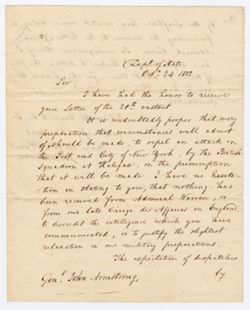 Dept of State
Octr 24. 1812.
Sir
I have had the honor to receive
your Letter of the 20th instant.
It is undoubtedly proper that every
preparation that circumstances will admit
of, should be made to repel an attack on
the Port and City of New York, by the British
Squadron at Halifax, on the presumption
that it will be made. I have no hesita-
tion in stating to you, that nothing has
been received from Admiral Warren, or
from our late Chargé des Affaires in England
to discredit the intelligence which you have
communicated, or to justify the slightest
relaxation in our military preparations.
The expectation of despatches
Genl. John Armstrong.
by